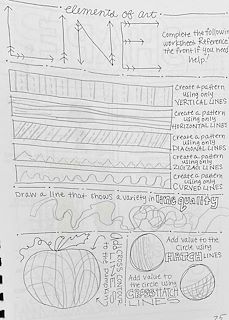 elements of art
LINE
Complete the following
worksheet. Reference
the front if you need
help!
Create a pattern
using only
VERTICAL LINES
Create a pattern
using only
HORIZONTAL LINES
Create a pattern
using only
DIAGONAL LINES
Create a pattern
using only
ZIGZAG LINES
Create a pattern
using only
CURVED LINES
Draw a line that shows a variety in line quality
Add
CROSS CONTOUR
LINES
to the pumpkin!
Add value to the
circle using
HATCH LINES
Add value to the
circle using
CROSSHATCH
LINES
75